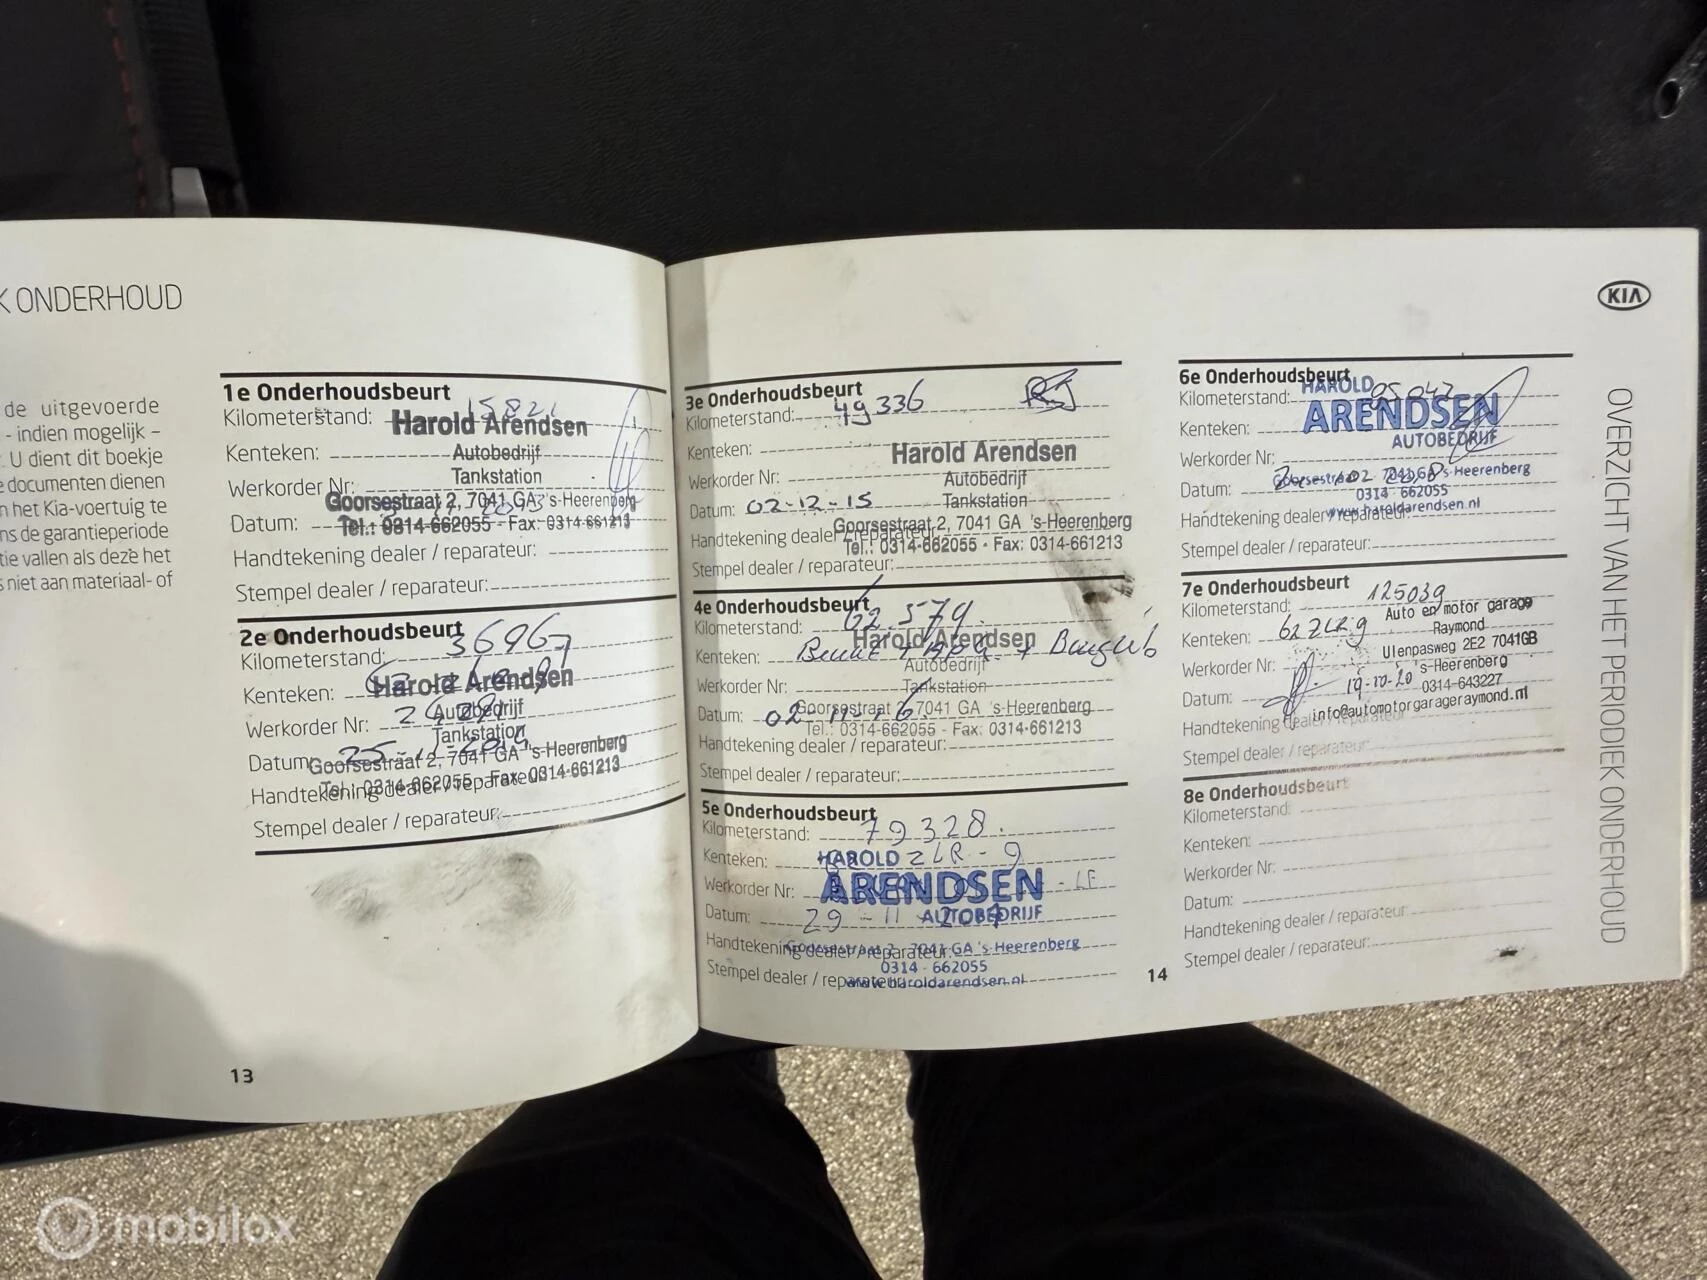 K ONDERHOUD
de uitgevoerde
- indien mogelijk –
. U dient dit boekje
e documenten dienen
n het Kia-voertuig te
ns de garantieperiode
tie vallen als deze het
s niet aan materiaal- of
1e Onderhoudsbeurt
Kilometerstand:
Harold Arendsen
Kenteken:
Autobedrijf
Tankstation
Werkorder Nr:
Goorsestraat 2, 7041 GA 's-Heerenberg
Datum:
Tel.: 0314-662055 - Fax: 0314-661213
Handtekening dealer / reparateur:
Stempel dealer / reparateur:
2e Onderhoudsbeurt
Kilometerstand: 36967
Kenteken:
Harold Arendsen
Autobedrijf
Werkorder Nr:
Tankstation
Datum:
Goorsestraat 2, 7041 GA 's-Heerenberg
Tel.: 0314-662055 - Fax: 0314-661213
Handtekening dealer / reparateur:
Stempel dealer / reparateur:
13
3e Onderhoudsbeurt
Kilometerstand: 49336
Kenteken:
Harold Arendsen
Autobedrijf
Werkorder Nr:
Tankstation
Datum: 02-12-15
Goorsestraat 2, 7041 GA 's-Heerenberg
Handtekening dealer / reparateur:
Tel.: 0314-662055 - Fax: 0314-661213
Stempel dealer / reparateur:
4e Onderhoudsbeurt
Kilometerstand: 62579
Harold Arendsen
Kenteken:
Autobedrijf
Werkorder Nr:
Tankstation
Datum:
Goorsestraat 2, 7041 GA 's-Heerenberg
Tel.: 0314-662055 - Fax: 0314-661213
Handtekening dealer / reparateur:
Stempel dealer / reparateur:
5e Onderhoudsbeurt
Kilometerstand: 79328
Kenteken: ZLR-9
HAROLD
ARENDSEN
Werkorder Nr:
AUTOBEDRIJF
Datum: 29-11
Goorsestraat 2, 7041 GA 's-Heerenberg
Handtekening dealer / reparateur:
0314 - 662055
Stempel dealer / reparateur:
www.haroldarendsen.nl
14
KIA
6e Onderhoudsbeurt
HAROLD
Kilometerstand:
ARENDSEN
Kenteken:
AUTOBEDRIJF
Werkorder Nr:
Goorsestraat 2, 7041 GA 's-Heerenberg
Datum:
0314 - 662055
www.haroldarendsen.nl
Handtekening dealer / reparateur:
Stempel dealer / reparateur:
7e Onderhoudsbeurt
Kilometerstand: 125039
Auto en motor garage
Kenteken: 62ZLR9
Raymond
Ulenpasweg 2E2 7041GB
Werkorder Nr:
's-Heerenberg
Datum: 19-10-20
0314-643227
info@automotorgarageraymond.nl
Handtekening dealer / reparateur:
Stempel dealer / reparateur:
8e Onderhoudsbeurt
Kilometerstand:
Kenteken:
Werkorder Nr:
Datum:
Handtekening dealer / reparateur:
Stempel dealer / reparateur:
OVERZICHT VAN HET PERIODIEK ONDERHOUD
mobilox